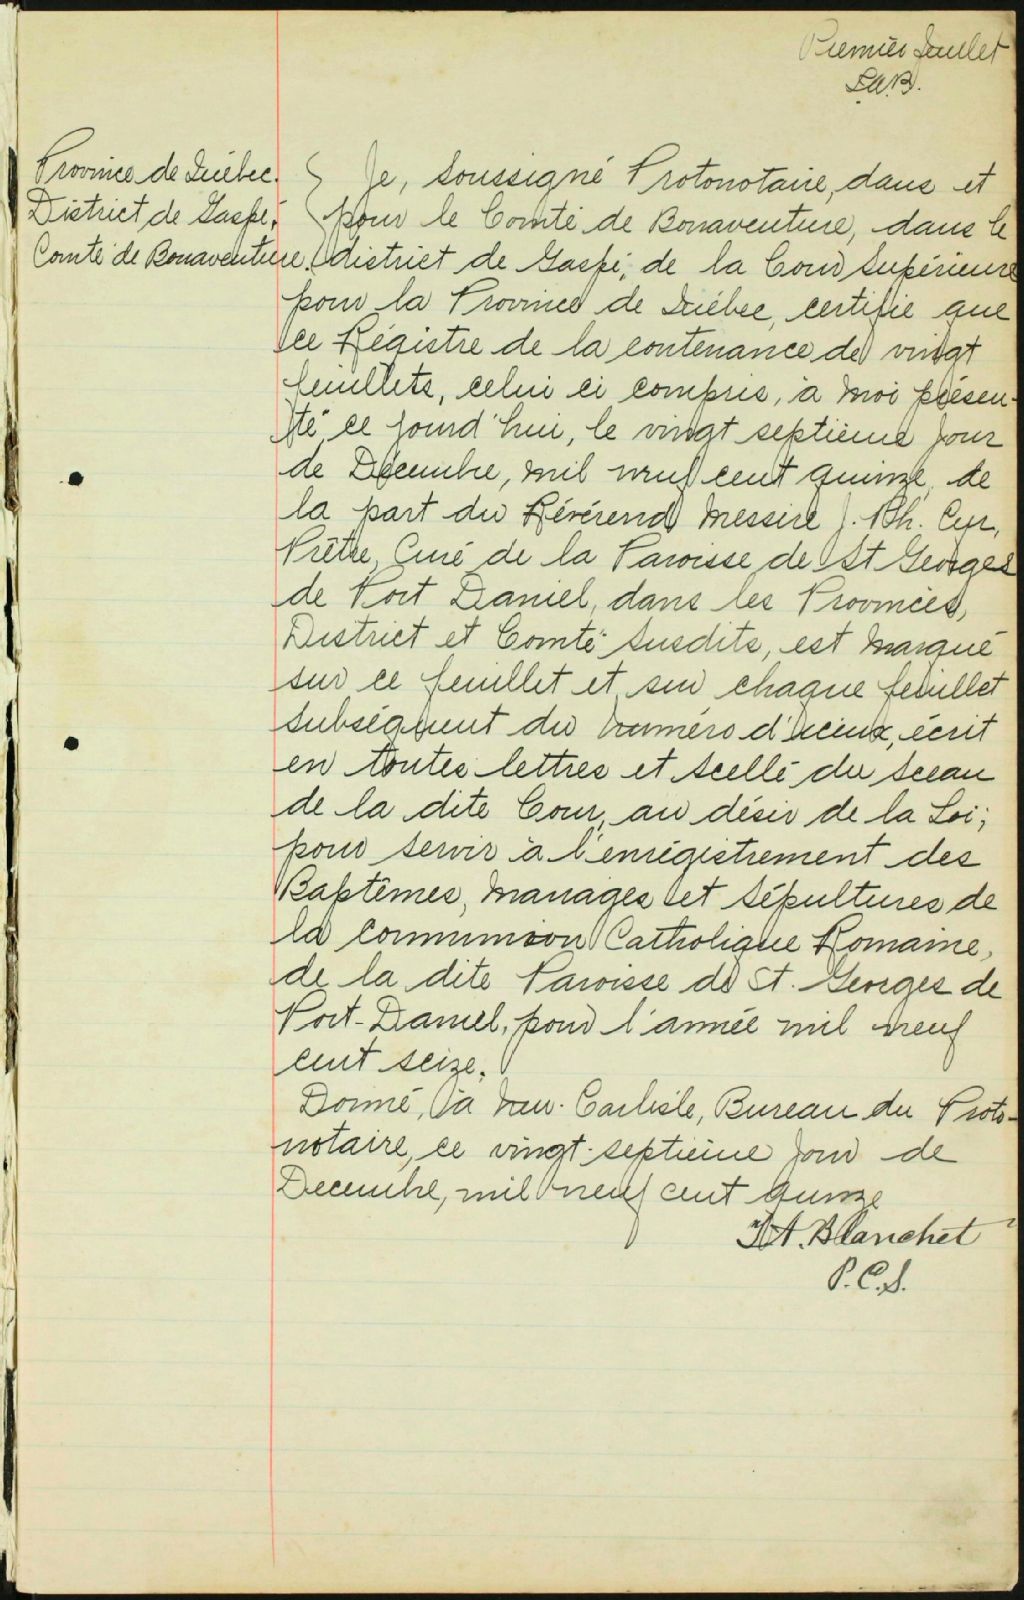 Premier feuillet
Province de Québec.
District de Gaspé,
Comté de Bonaventure.
Je, Soussigné Protonotaire, dans et
pour le Comté de Bonaventure, dans le
district de Gaspé, de la Cour Supérieure
pour la Province de Québec, certifie que
ce Régistre de la contenance de vingt
feuillets, celui ci compris, à moi présen-
té, ce jourd'hui, le vingt septième jour
de Décembre, mil neuf cent quinze, de
la part du Révérend Messire J. Ph. Cyr,
Prêtre, Curé de la Paroisse de St Georges
de Port Daniel, dans les Province,
District et Comté susdits, est marqué
sur ce feuillet et sur chaque feuillet
subséquent du numéro d'iceux, écrit
en toutes lettres et scellé du sceau
de la dite Cour, au désir de la Loi;
pour servir à l'enrégistrement des
Baptêmes, Mariages et Sépultures de
la communion Catholique Romaine,
de la dite Paroisse de St. Georges de
Port-Daniel, pour l'année mil neuf
cent seize.
Donné, à New-Carlisle, Bureau du Proto-
notaire, ce vingt-septième jour de
Decembre, mil neuf cent quinze
Blanchet
P.C.S.